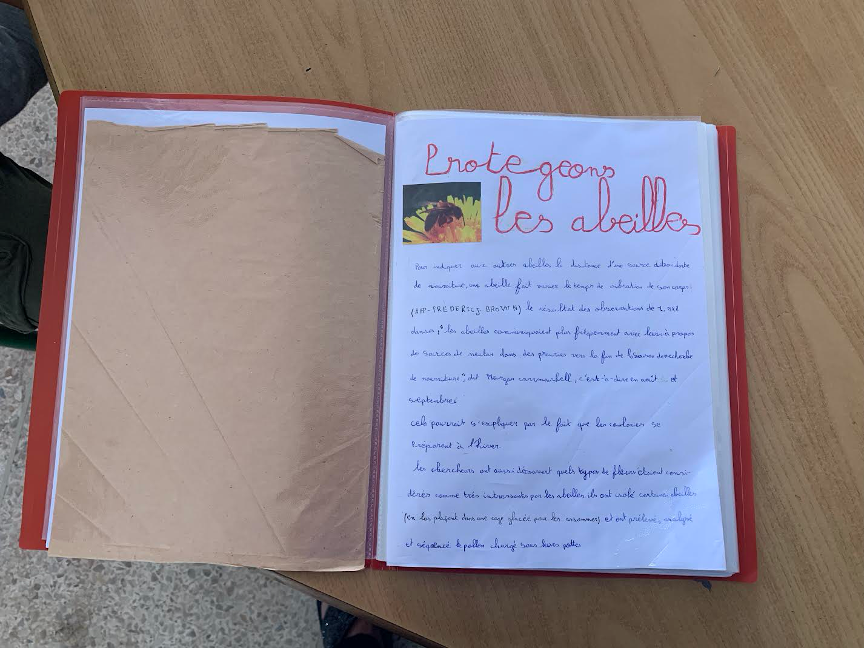 Protegeons
les abeilles
Pour indiquer aux autres abeilles la distance d'une source
de nourriture, une abeille fait varier le temps de vibration de son corps
(AFP-FREDERICJ. BROWN) le résultat des observations de
danses, "les abeilles communiquaient plus fréquemment avec à propos
de sources de nectar dans des prairies vers la fin de
de nourriture", dit c'est-à-dire en août et
septembre.
cela pourrait s'expliquer par le fait que les colonies se
Préparent à l'hiver.
les chercheurs ont aussi découvert quels types de fleurs étaient consi-
dérés comme très intéressants par les abeilles ils ont isolé certaines abeilles
(en les plaçant dans une cage glacée pour les ) et ont prélevé, analysé
et séquencé le pollen chargé sous leurs pattes